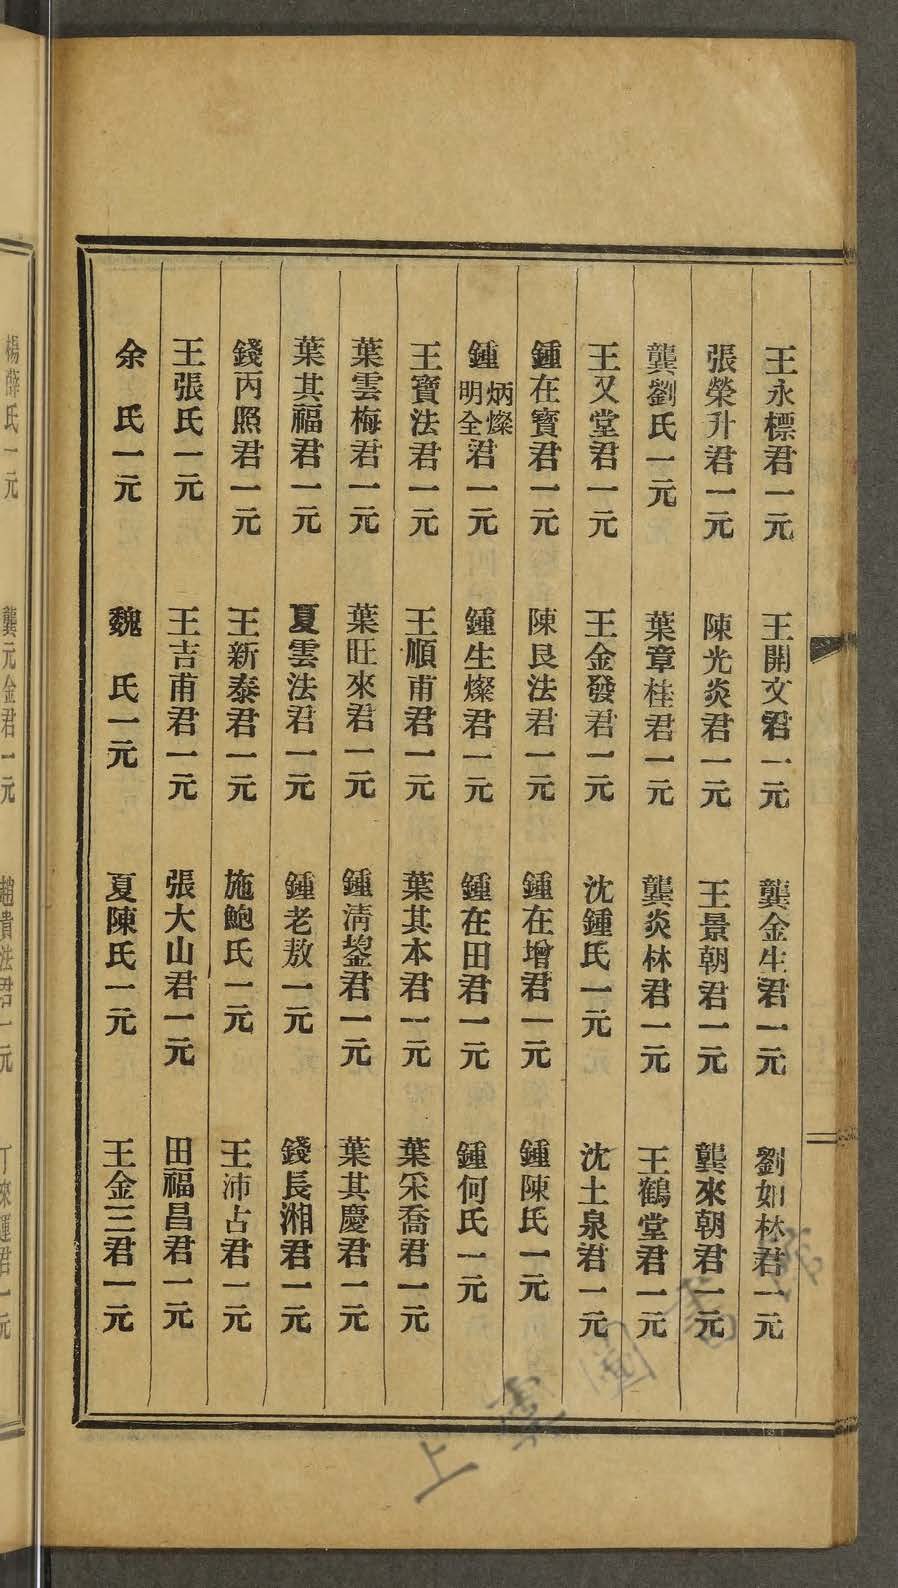 王永標君一元　王開文君一元　龔金生君一元　劉如林君一元
張榮升君一元　陳光炎君一元　王景朝君一元　龔來朝君一元
龔劉氏一元　葉章桂君一元　龔炎林君一元　王鶴堂君一元
王又堂君一元　王金發君一元　沈鍾氏一元　沈土泉君一元
鍾在寶君一元　陳良法君一元　鍾在增君一元　鍾陳氏一元
鍾炳燦明全君一元　鍾生燦君一元　鍾在田君一元　鍾何氏一元
王寶法君一元　王順甫君一元　葉其本君一元　葉采喬君一元
葉雲梅君一元　葉旺來君一元　鍾清鋆君一元　葉其慶君一元
葉其福君一元　夏雲法君一元　鍾老敖一元　錢長湘君一元
錢丙照君一元　王新泰君一元　施鮑氏一元　王沛占君一元
王張氏一元　王吉甫君一元　張大山君一元　田福昌君一元
余　氏一元　魏　氏一元　夏陳氏一元　王金三君一元
楊薛氏一元　龔元金君一元　趙貴法君一元　丁來運君一元
上海圖書館